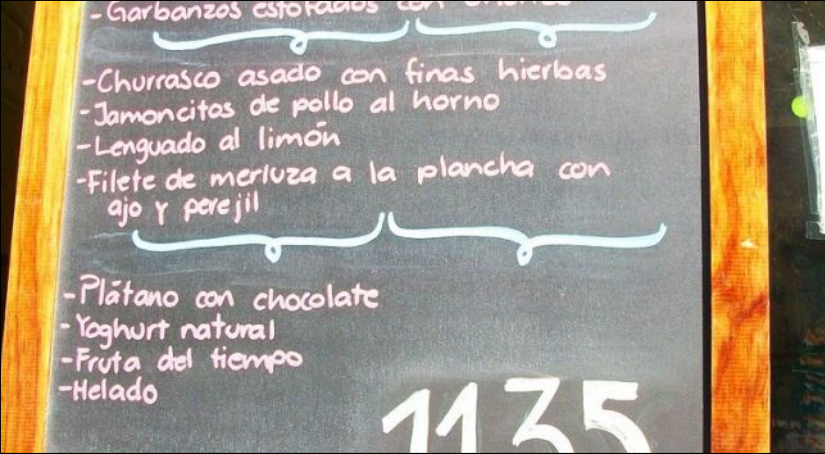 - Garbanzos estofados con
- Churrasco asado con finas hierbas
- Jamoncitos de pollo al horno
- Lenguado al limón
- Filete de merluza a la plancha con
ajo y perejil
- Plátano con chocolate
- Yoghurt natural
- Fruta del tiempo
- Helado
11 35